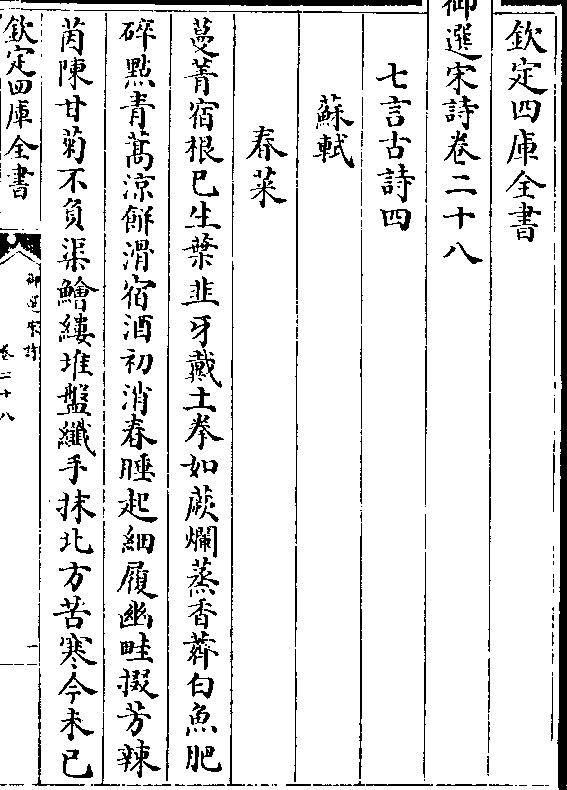 欽定四庫全書
御選宋詩卷二十八
七言古詩四
蘇軾
春菜
蔓菁宿根巳生葉韭牙戴土拳如蕨爛蒸香薺白魚肥
碎點青蒿涼餅滑宿酒初消春睡起細履幽畦掇芳辣
茵陳甘菊不負渠鱠縷堆盤纖手抹北方苦寒今未已
欽定四庫全書
御選宋詩
卷二十八
一